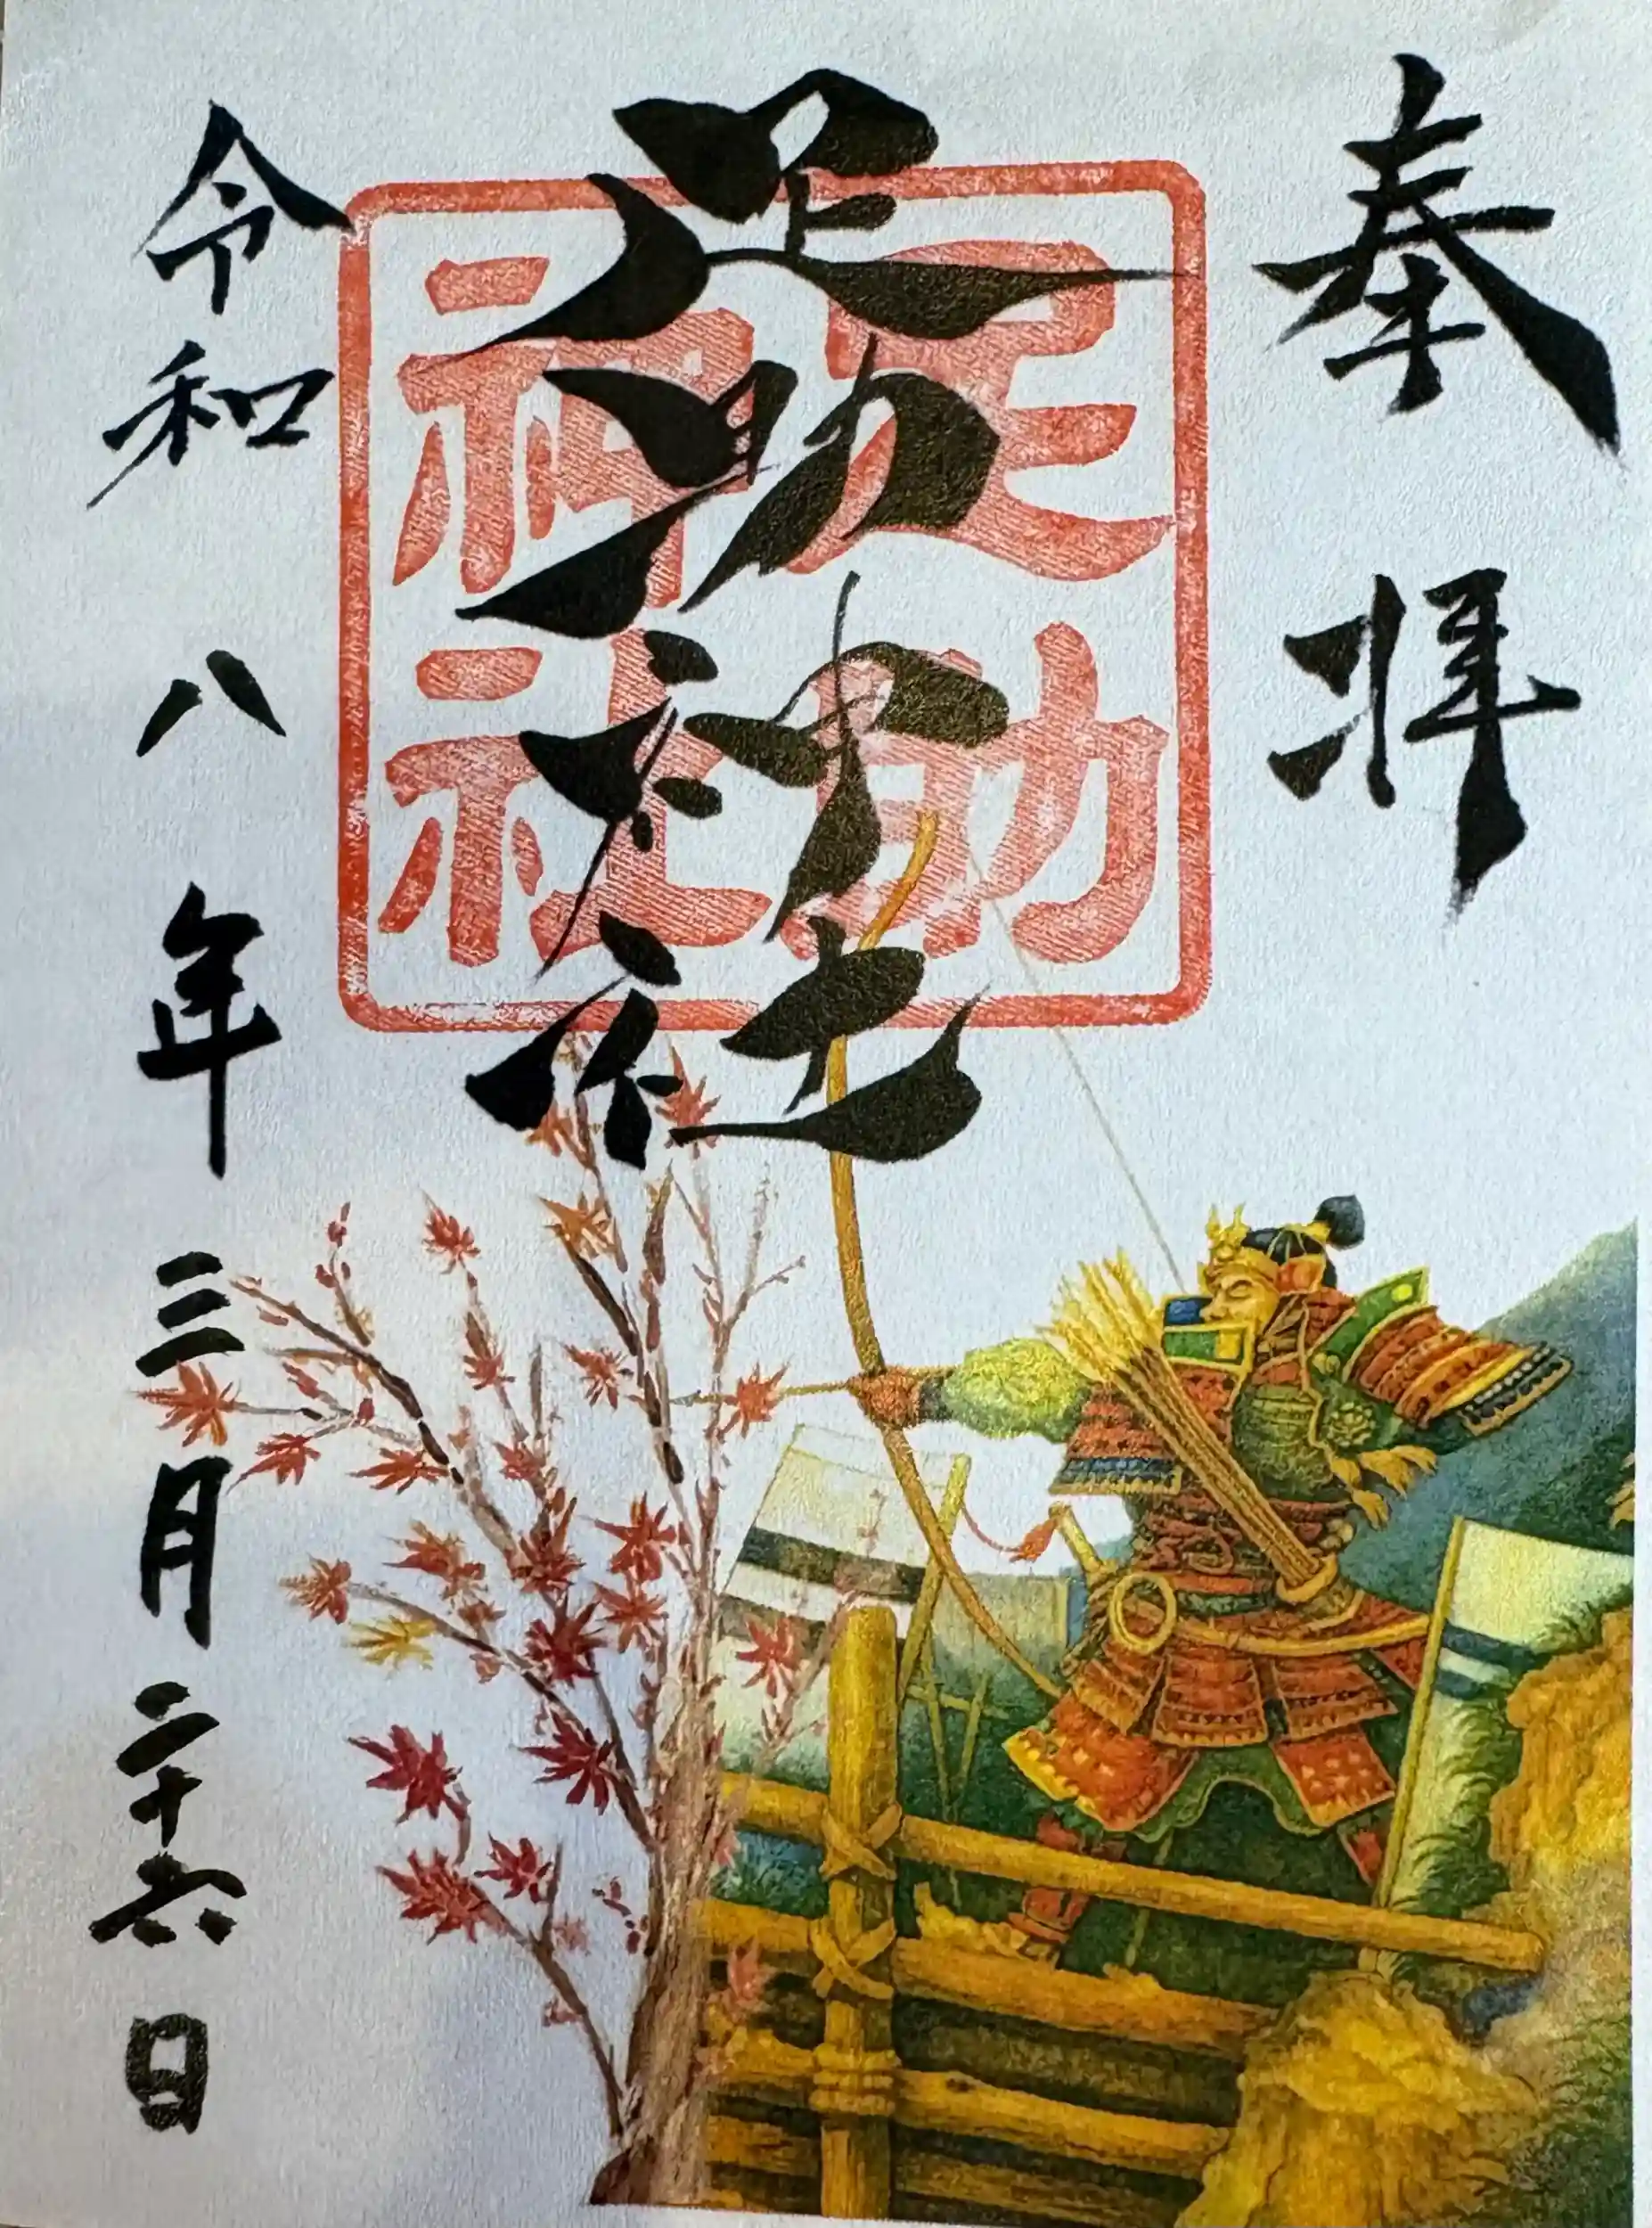 奉拝
足助神社
足助
神社
令和八年三月二十六日